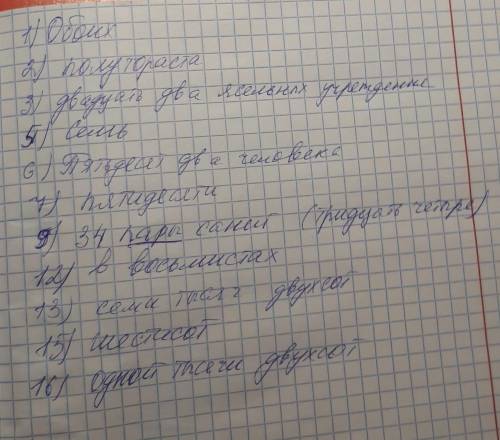 1) Обоих
2) полутораста
3) двадцать два ясельных учреждение
5) Семь
6) Пятьдесят два человека
7) пятидесяти
9) 34 пары саней (тридцать четыре)
12) в восьмистах
13) семи тысяч двухсот
15) шестисот
16) одной тысячи двухсот